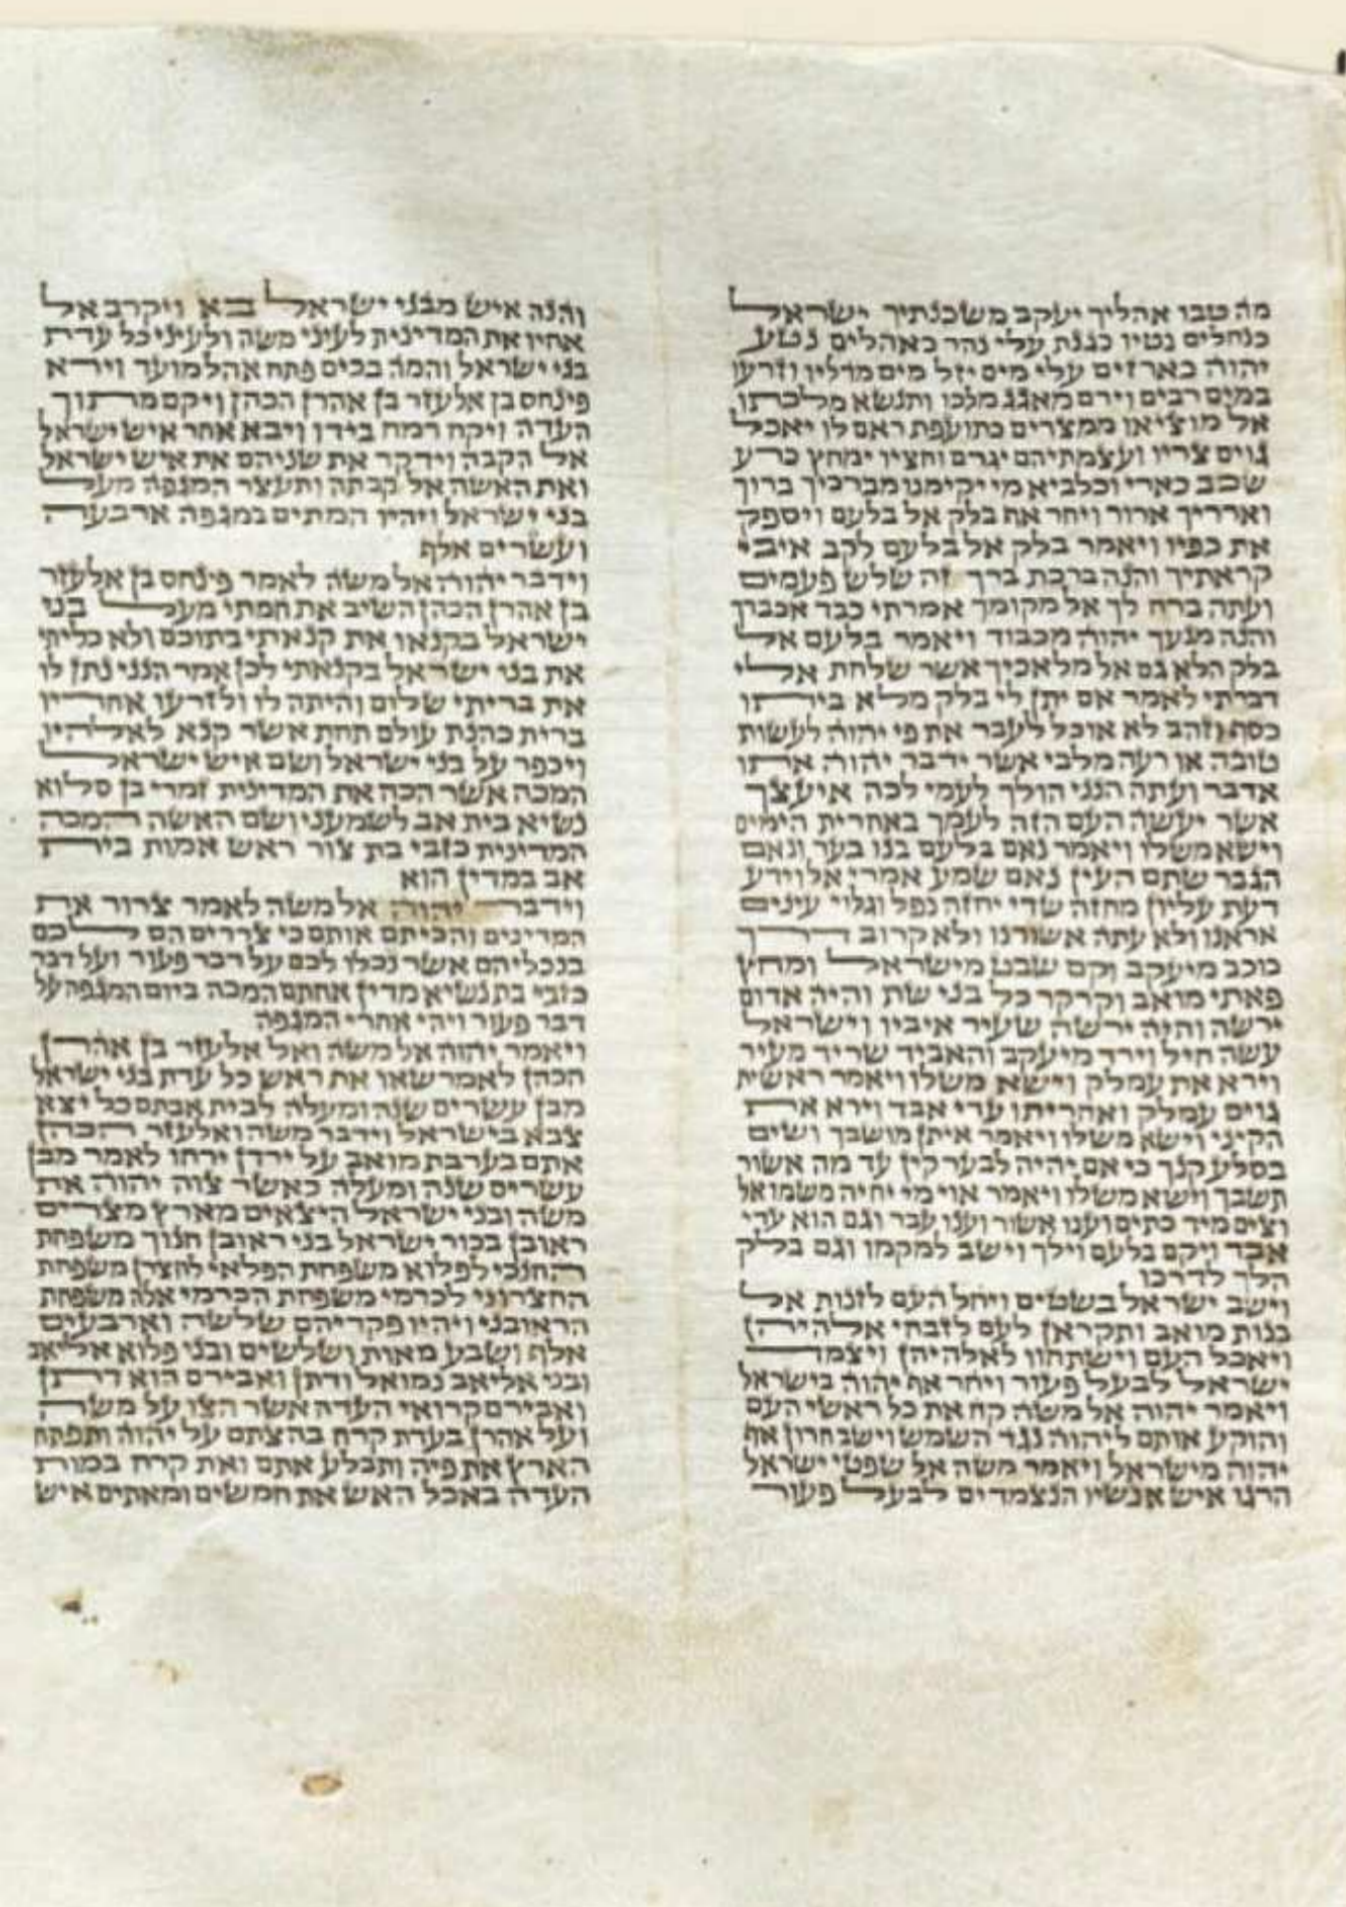 מה טבו אהליך יעקב משכנתיך ישראל
כנחלים נטיו כגנת עלי נהר כאהלים נטע
יהוה כארזים עלי מים יזל מים מדליו וזרעו
במים רבים וירם מאגג מלכו ותנשא מלכתו
אל מוציאו ממצרים כתועפת ראם לו יאכל
גוים צריו ועצמתיהם יגרם וחציו ימחץ כרע
שכב כארי וכלביא מי יקימנו מברכיך ברוך
וארריך ארור ויחר אף בלק אל בלעם ויספק
את כפיו ויאמר בלק אל בלעם לקב איבי
קראתיך והנה ברכת ברך זה שלש פעמים
ועתה ברח לך אל מקומך אמרתי כבד אכבדך
והנה מנעך יהוה מכבוד ויאמר בלעם אל
בלק הלא גם אל מלאכיך אשר שלחת אלי
דברתי לאמר אם יתן לי בלק מלא ביתו
כסף וזהב לא אוכל לעבר את פי יהוה לעשות
טובה או רעה מלבי אשר ידבר יהוה אתו
אדבר ועתה הנני הולך לעמי לכה איעצך
אשר יעשה העם הזה לעמך באחרית הימים
וישא משלו ויאמר נאם בלעם בנו בער ונאם
הגבר שתם העין נאם שמע אמרי אל וידע
דעת עליון מחזה שדי יחזה נפל וגלוי עינים
אראנו ולא עתה אשורנו ולא קרוב דרך
כוכב מיעקב וקם שבט מישראל ומחץ
פאתי מואב וקרקר כל בני שת והיה אדום
ירשה והיה ירשה שעיר איביו וישראל
עשה חיל וירד מיעקב והאביד שריד מעיר
וירא את עמלק וישא משלו ויאמר ראשית
גוים עמלק ואחריתו עדי אבד וירא את
הקיני וישא משלו ויאמר איתן מושבך ושים
בסלע קנך כי אם יהיה לבער קין עד מה אשור
תשבך וישא משלו ויאמר אוי מי יחיה משמו אל
וצים מיד כתים וענו אשור וענו עבר וגם הוא עדי
אבד ויקם בלעם וילך וישב למקמו וגם בלק
הלך לדרכו
וישב ישראל בשטים ויחל העם לזנות אל
בנות מואב ותקראן לעם לזבחי אלהיהן
ויאכל העם וישתחוו לאלהיהן ויצמד
ישראל לבעל פעור ויחר אף יהוה בישראל
ויאמר יהוה אל משה קח את כל ראשי העם
והוקע אותם ליהוה נגד השמש וישב חרון אף
יהוה מישראל ויאמר משה אל שפטי ישראל
הרגו איש אנשיו הנצמדים לבעל פעור
והנה איש מבני ישראל בא ויקרב אל
אחיו את המדינית לעיני משה ולעיני כל עדת
בני ישראל והמה בכים פתח אהל מועד וירא
פינחס בן אלעזר בן אהרן הכהן ויקם מתוך
העדה ויקח רמח בידו ויבא אחר איש ישראל
אל הקבה וידקר את שניהם את איש ישראל
ואת האשה אל קבתה ותעצר המגפה מעל
בני ישראל ויהיו המתים במגפה ארבעה
ועשרים אלף
וידבר יהוה אל משה לאמר פינחס בן אלעזר
בן אהרן הכהן השיב את חמתי מעל בני
ישראל בקנאו את קנאתי בתוכם ולא כליתי
את בני ישראל בקנאתי לכן אמר הנני נתן לו
את בריתי שלום והיתה לו ולזרעו אחריו
ברית כהנת עולם תחת אשר קנא לאלהיו
ויכפר על בני ישראל ושם איש ישראל
המכה אשר הכה את המדינית זמרי בן סלוא
נשיא בית אב לשמעני ושם האשה המכה
המדינית כזבי בת צור ראש אמות בית
אב במדין הוא
וידבר יהוה אל משה לאמר צרור את
המדינים והכיתם אותם כי צררים הם לכם
בנכליהם אשר נכלו לכם על דבר פעור ועל דבר
כזבי בת נשיא מדין אחתם המכה ביום המגפה על
דבר פעור ויהי אחרי המגפה
ויאמר יהוה אל משה ואל אלעזר בן אהרן
הכהן לאמר שאו את ראש כל עדת בני ישראל
מבן עשרים שנה ומעלה לבית אבתם כל יצא
צבא בישראל וידבר משה ואלעזר הכהן
אתם בערבת מואב על ירדן ירחו לאמר מבן
עשרים שנה ומעלה כאשר צוה יהוה את
משה ובני ישראל היצאים מארץ מצרים
ראובן בכור ישראל בני ראובן חנוך משפחת
החנכי לפלוא משפחת הפלאי לחצרן משפחת
החצרוני לכרמי משפחת הכרמי אלה משפחת
הראובני ויהיו פקדיהם שלשה וארבעים
אלף ושבע מאות ושלשים ובני פלוא אליאב
ובני אליאב נמואל ודתן ואבירם הוא דתן
ואבירם קרואי העדה אשר הצו על משה
ועל אהרן בעדת קרח בהצתם על יהוה ותפתח
הארץ את פיה ותבלע אתם ואת קרח במות
העדה באכל האש את חמשים ומאתים איש